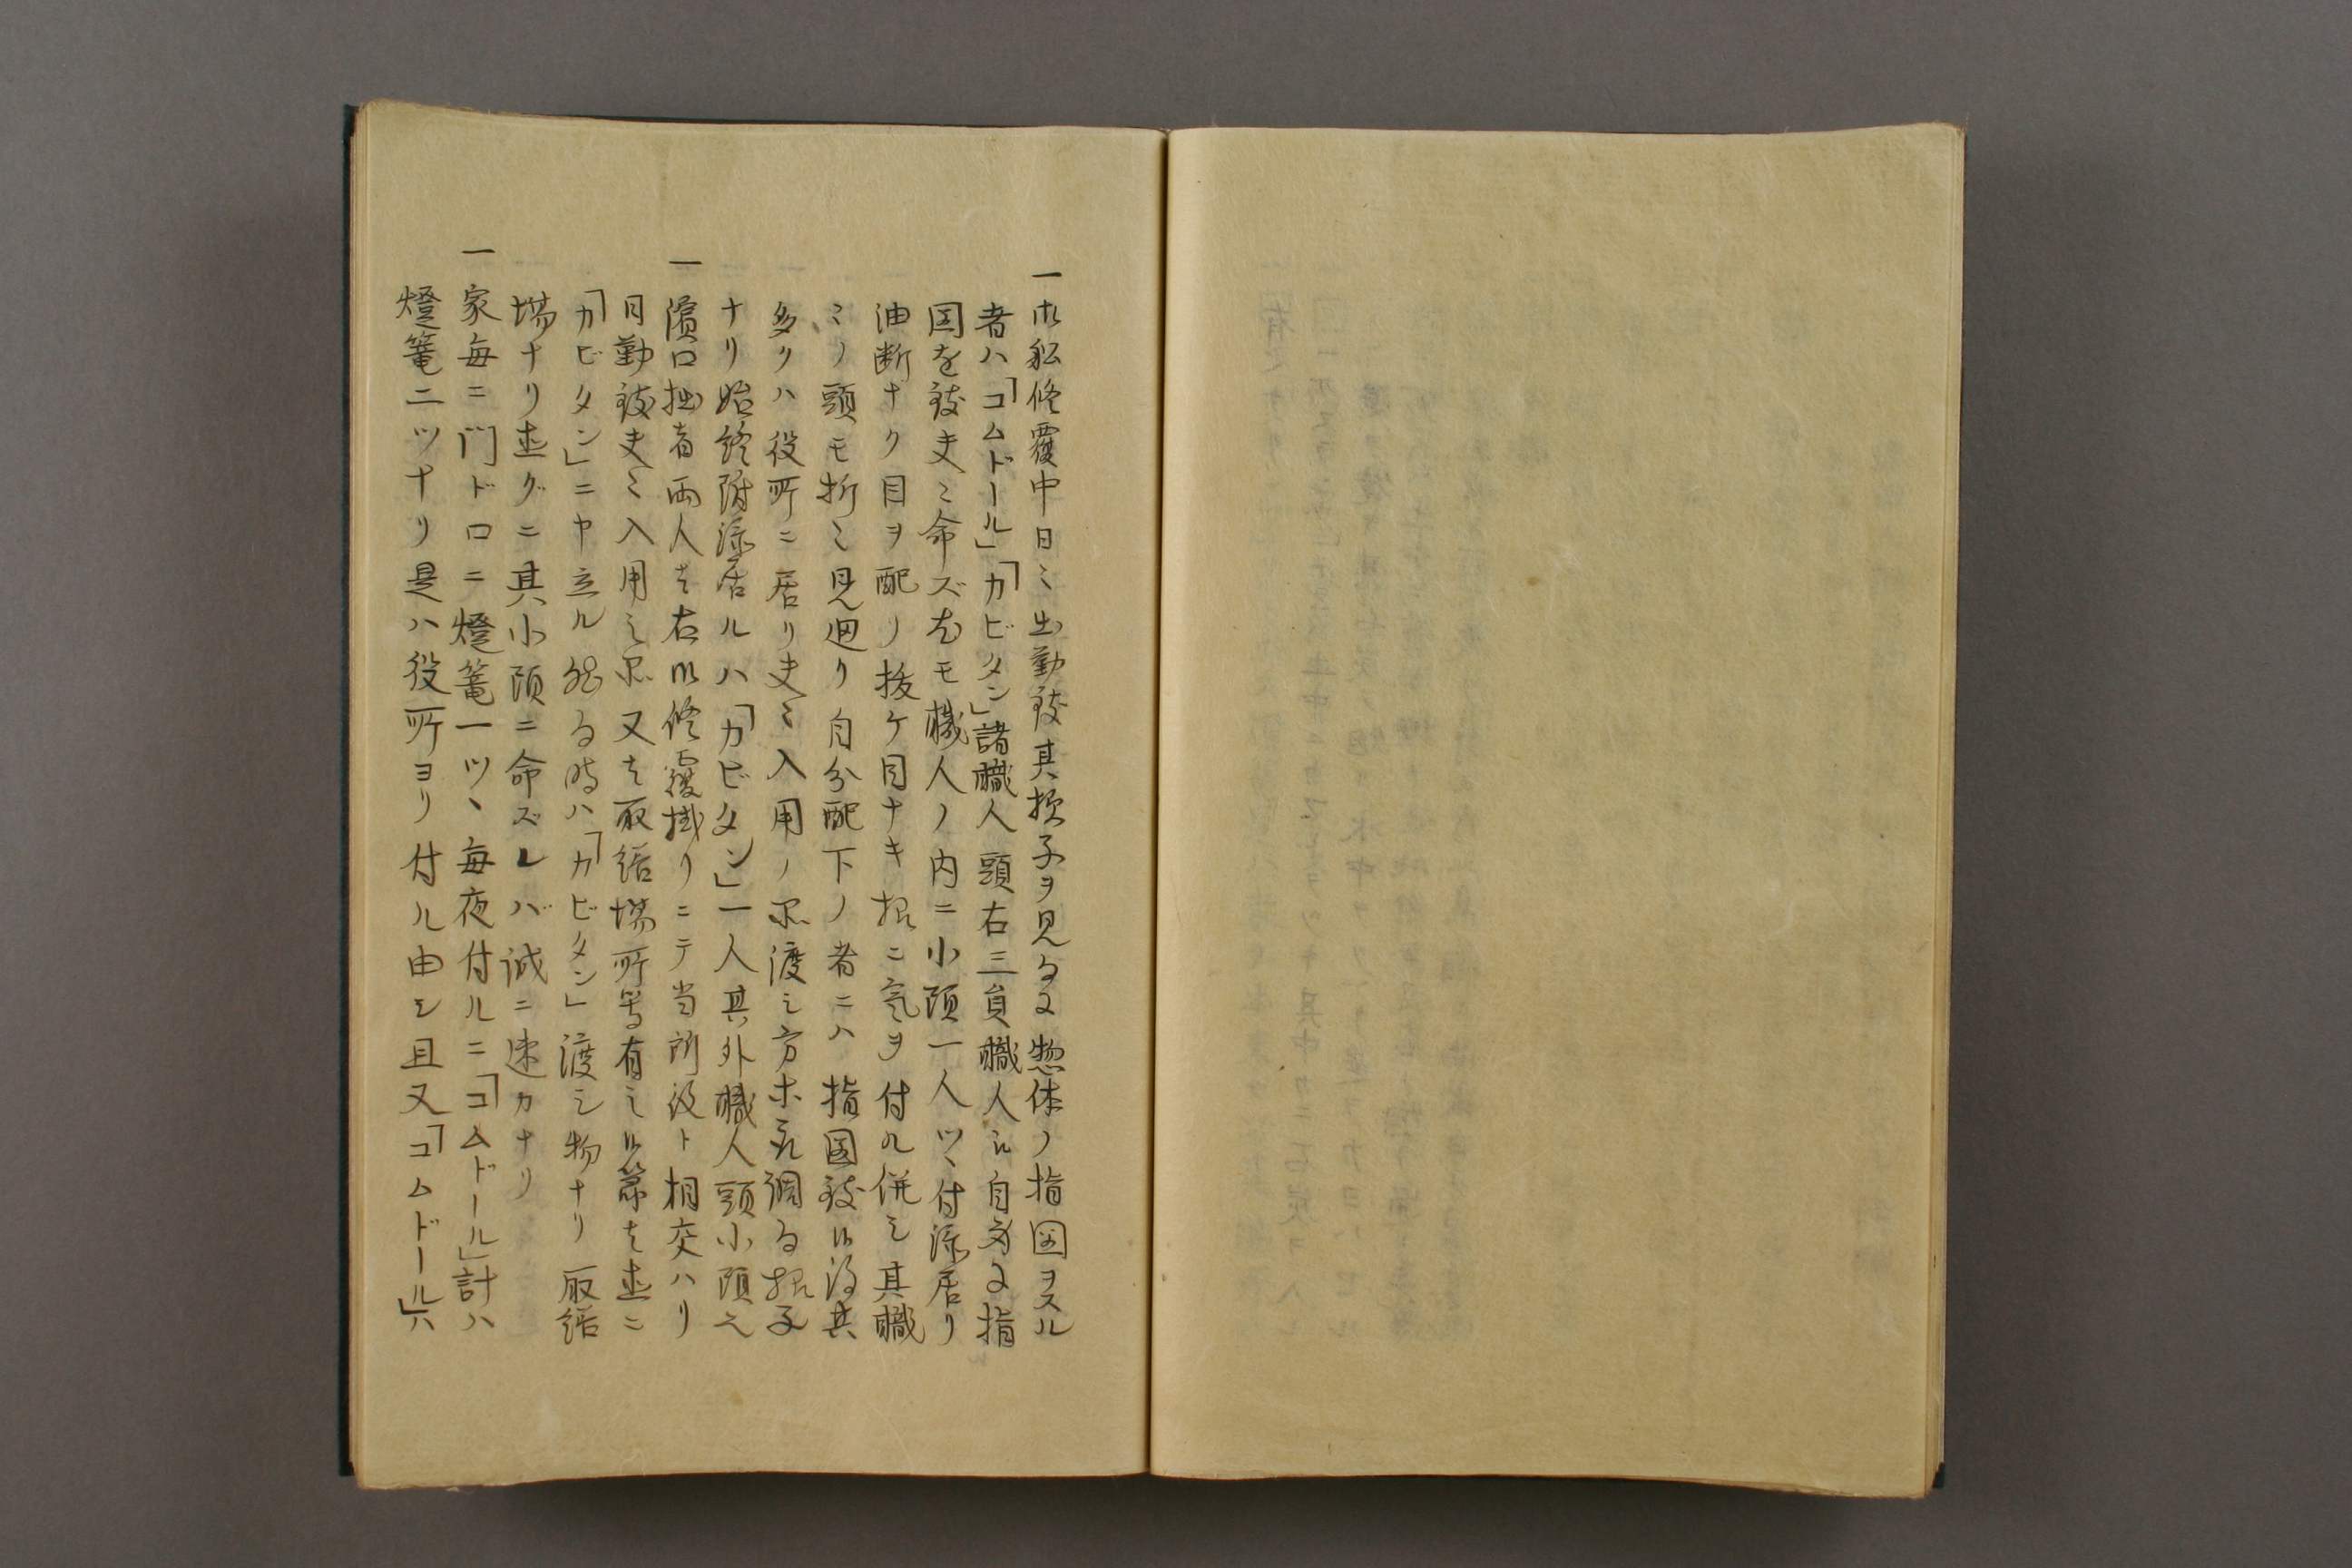 一御船修覆中日々出勤致其様子ヲ見るに惣体ノ指図ヲスル
者ハ「コムドール」「カビタン」諸職人頭右三員職人江自身に指
図を致夫々命ズ尤モ職人ノ内ニ小頭一人ツヽ付添居リ
油断ナク目ヲ配リ抜ケ目ナキ様ニ気ヲ付ル併シ其職
々ノ頭モ折々見廻リ自分配下ノ者ニハ指図致候得共
多クハ役所ニ居リ夫々入用ノ品渡し方ホ取調る様子
ナリ始終附添居ルハ「カビタン」一人其外職人頭小頭之
一濱口拙者両人は右御修覆掛リニテ当所役ト相交ハリ
日勤致夫々入用之品又は取繕場所等有之候節は直ニ
「カビタン」ニ申立ル然る時ハ「カビタン」渡し物ナリ取繕
場ナリ直グニ其小頭ニ命ズレバ誠ニ速カナリ
一家毎ニ門ドロニ燈篭一ツヽ毎夜付ルニ「コムドール」計ハ
燈篭二ツナリ是ハ役所ヨリ付ル由シ且又「コムドール」ハ